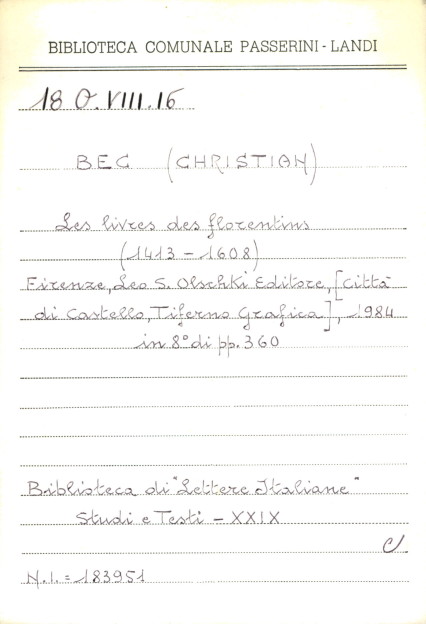 BIBLIOTECA COMUNALE PASSERINI - LANDI
18 O.VIII.16
BEC (CHRISTIAN)
Les livres des florentins
(1413 - 1608)
Firenze, Leo S. Olschki Editore, [Città
di Castello, Tiferno Grafica], 1984
in 8° di pp. 360
Biblioteca di "Lettere Italiane"
Studi e Testi - XXIX
N.I. = 183951